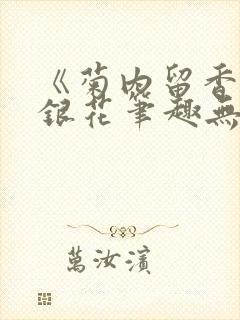 《菊内留香
銀花筆趣無
萬汝濱